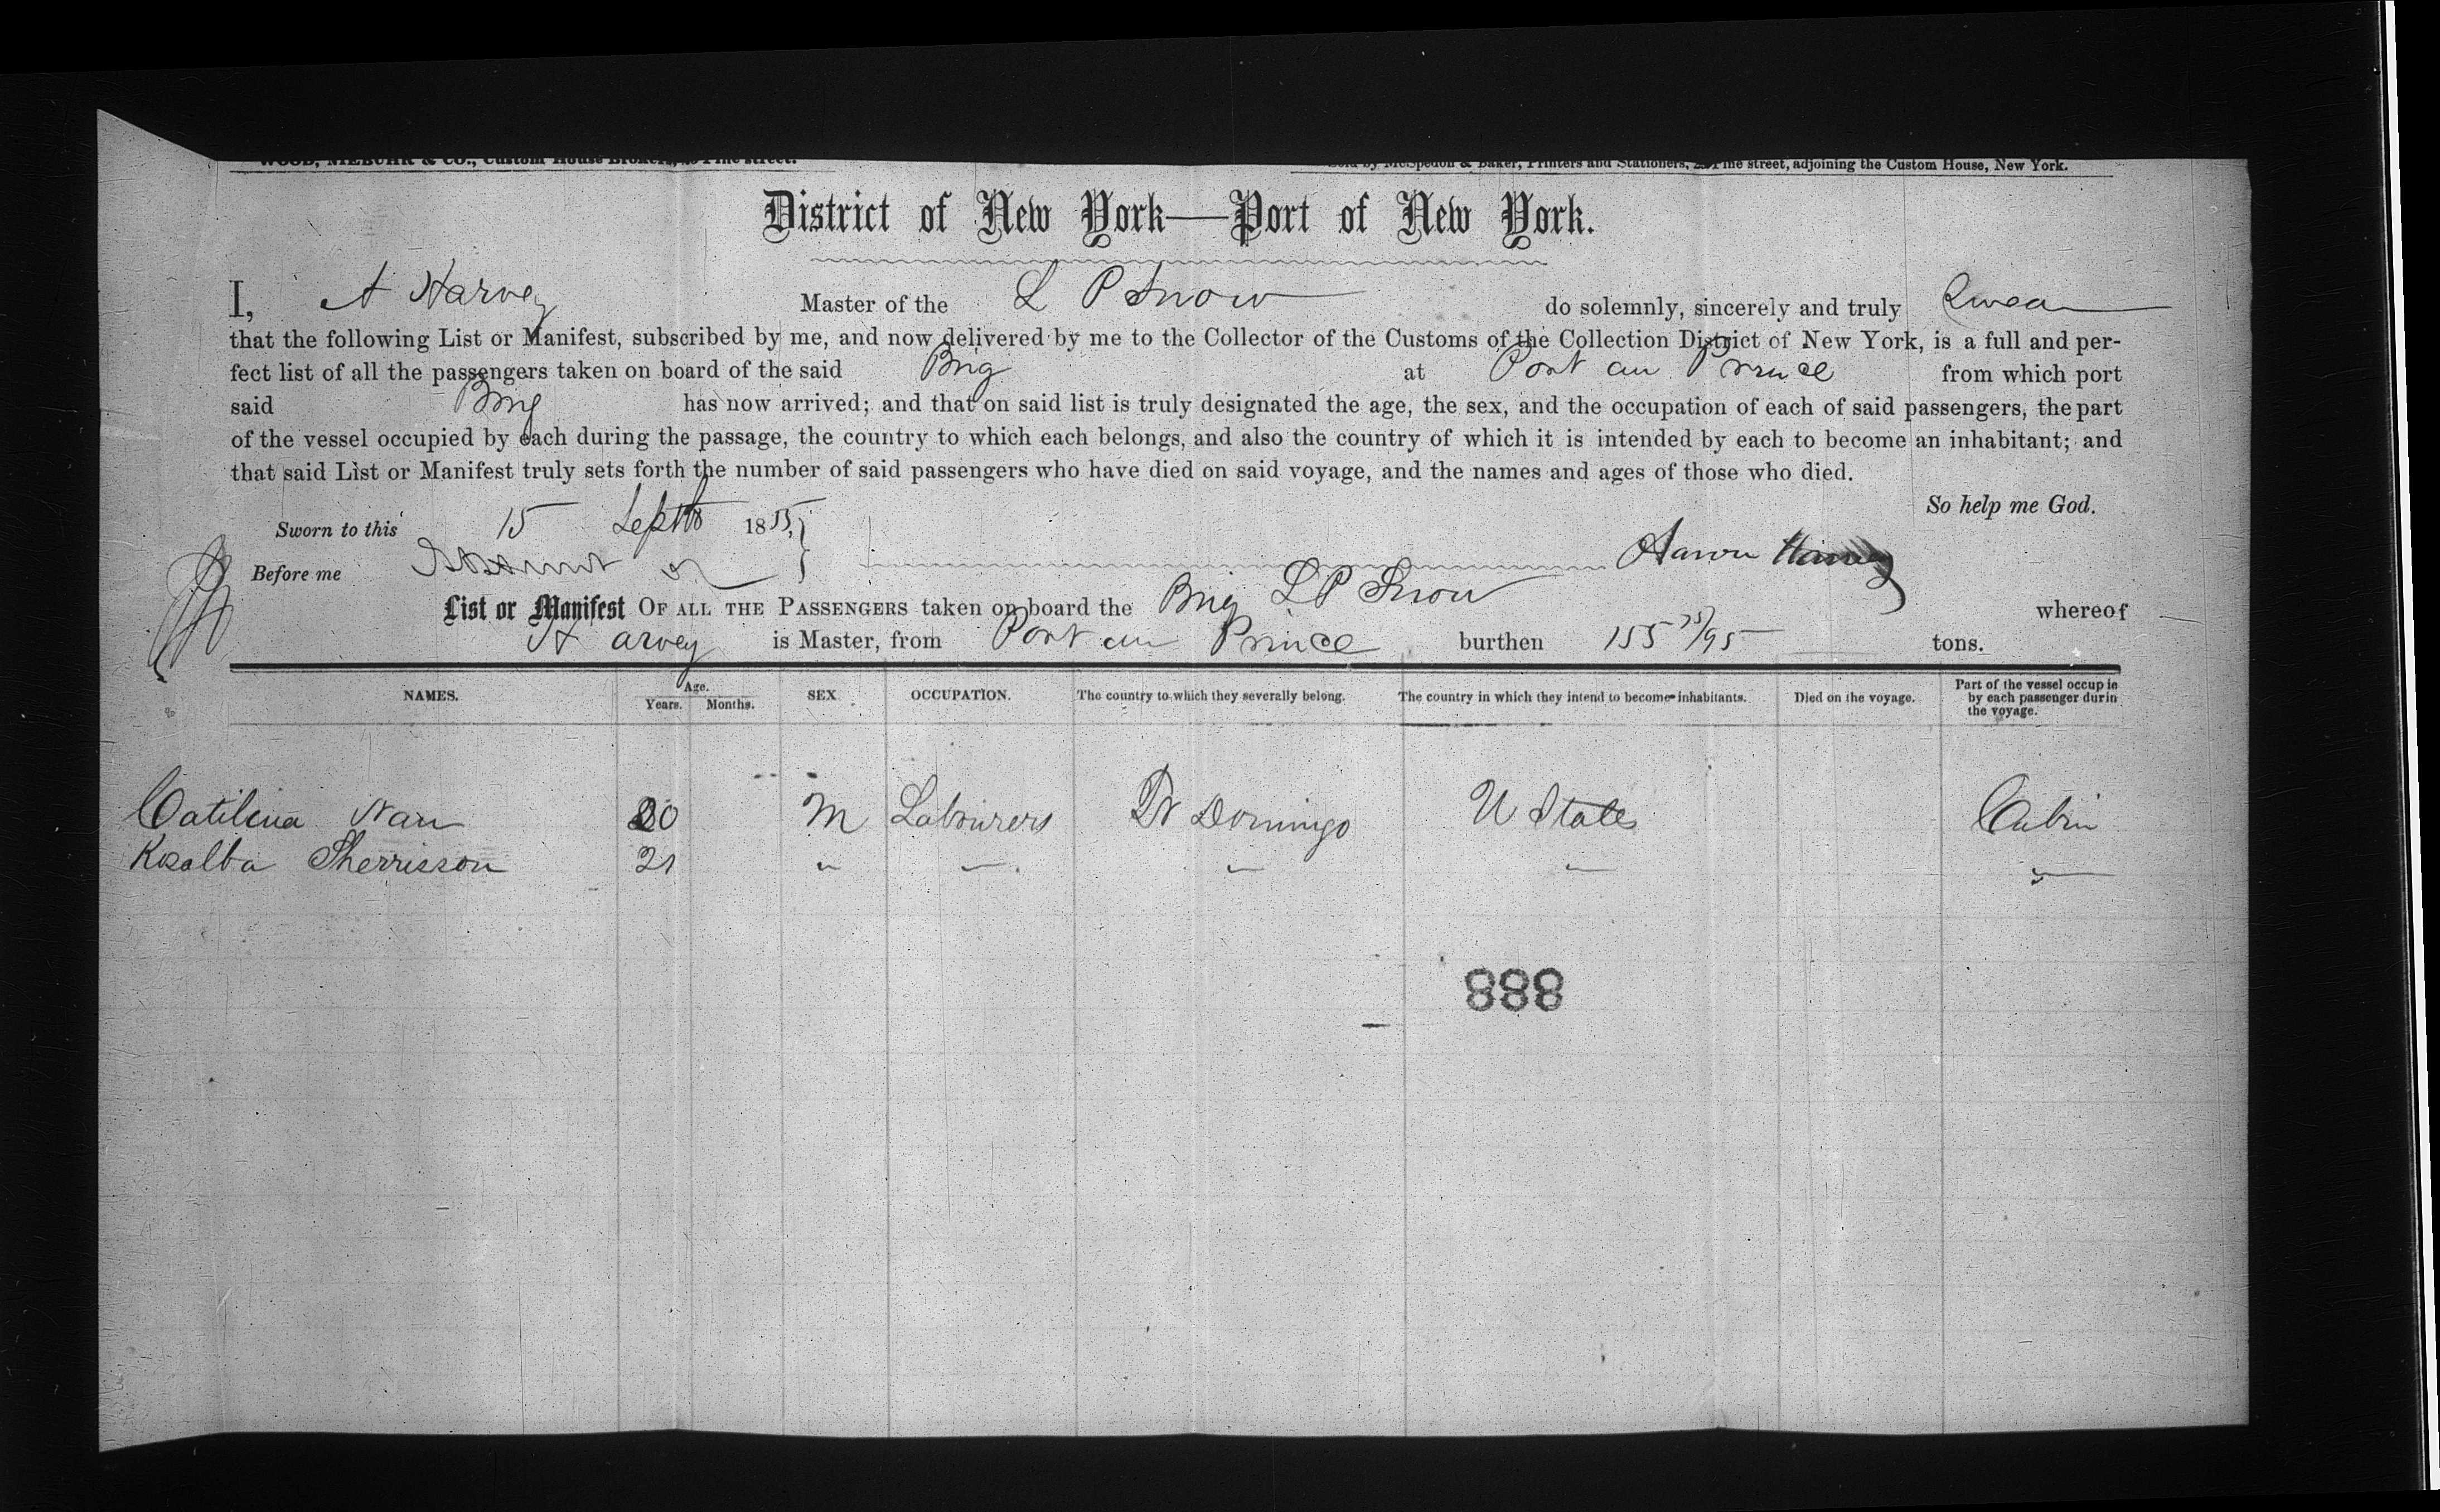 WOOD, NIEBUHR & CO., Custom House Brokers, Pine street.
Sold by McSpedon & Baker, Printers and Stationers, Pine street, adjoining the Custom House, New York.
District of New York—Port of New York.
I, A Harvey Master of the L P Snow do solemnly, sincerely and truly Swear
that the following List or Manifest, subscribed by me, and now delivered by me to the Collector of the Customs of the Collection District of New York, is a full and per-
fect list of all the passengers taken on board of the said Brig at Port au Prince from which port
said Brig has now arrived; and that on said list is truly designated the age, the sex, and the occupation of each of said passengers, the part
of the vessel occupied by each during the passage, the country to which each belongs, and also the country of which it is intended by each to become an inhabitant; and
that said List or Manifest truly sets forth the number of said passengers who have died on said voyage, and the names and ages of those who died.
So help me God.
Sworn to this 15 Septr 1855,
Before me Aaron Harvey
List or Manifest OF ALL THE PASSENGERS taken on board the Brig L P Snow whereof
A Harvey is Master, from Port au Prince burthen 155 75/95 tons.
NAMES. Age. Years. Months. SEX OCCUPATION. The country to which they severally belong. The country in which they intend to become inhabitants. Died on the voyage. Part of the vessel occupie by each passenger durin the voyage.
Catilina Nau 20 M Labourers St Domingo U States Cabin
Rosalba Sherrisson 21 " " " " "
888